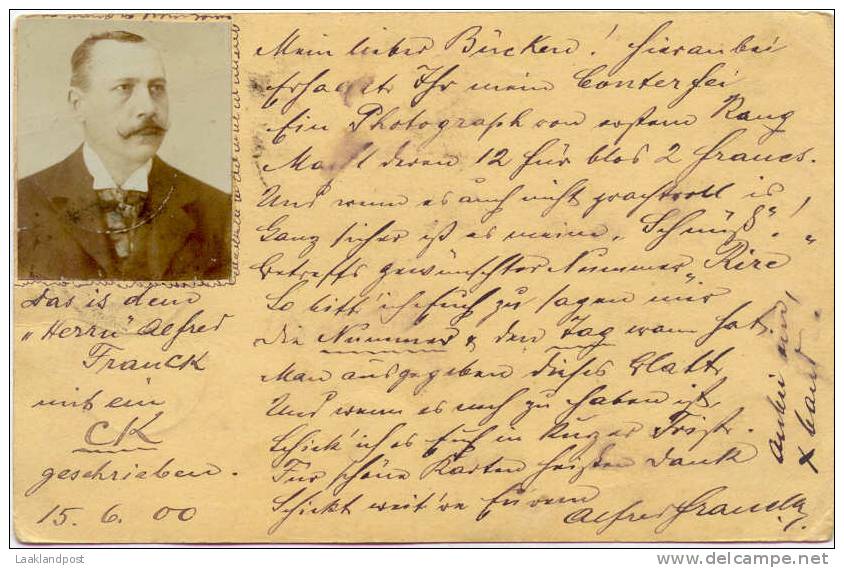 Mein lieber Bürcken! Hieranbei
Erhaltet Ihr mein Conterfei
Ein Photograph von erstem Rang
Macht deren 12 für blos 2 francs.
Und wenn es auch nicht prachtvoll is'
Ganz sicher ist es meine „Schnüß"!
Betreffs gewünschter Nummer „Rire"
So bitt' ich Euch zu sagen mir
Die Nummer & den Tag wann hat
Man ausgegeben dieses Blatt
Und wenn es noch zu haben ist
Schick' ich es Euch in kurzer Frist.
Für schöne Karten heißen Dank
Schickt weit're Eurem
Alfred Franck
Das is dem
„Herrn" Alfred
Franck
mit ein
CK
geschrieben.
15. 6. 00
Laaklandpost
delcampe.net